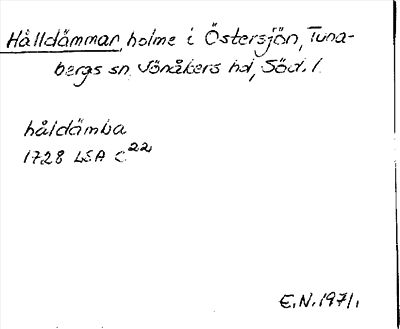 Hålldämmar, holme i Östersjön, Tuna-
bergs sn. Jönåkers hd, Söd. l.
håldämba
1728 LSA C22
E.N. 1971.